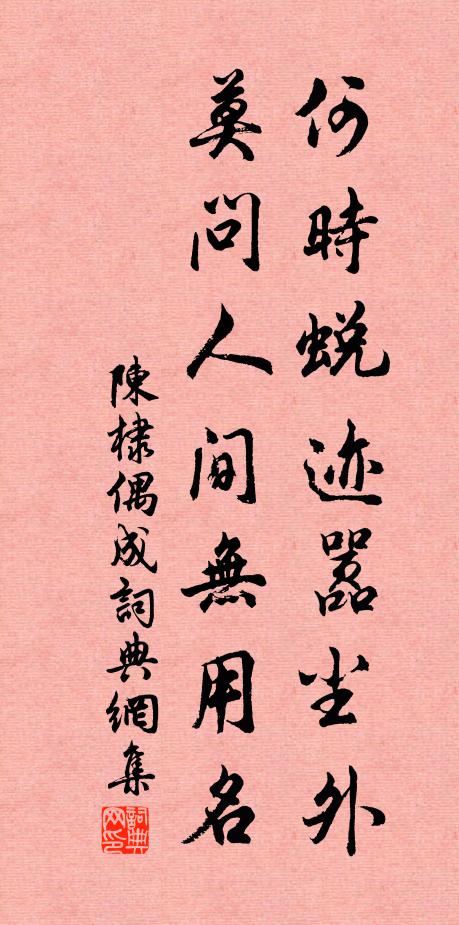 何時蛻迹嚣尘外
莫問人間無用名
陳棣偶成詞典網集
詞典网印